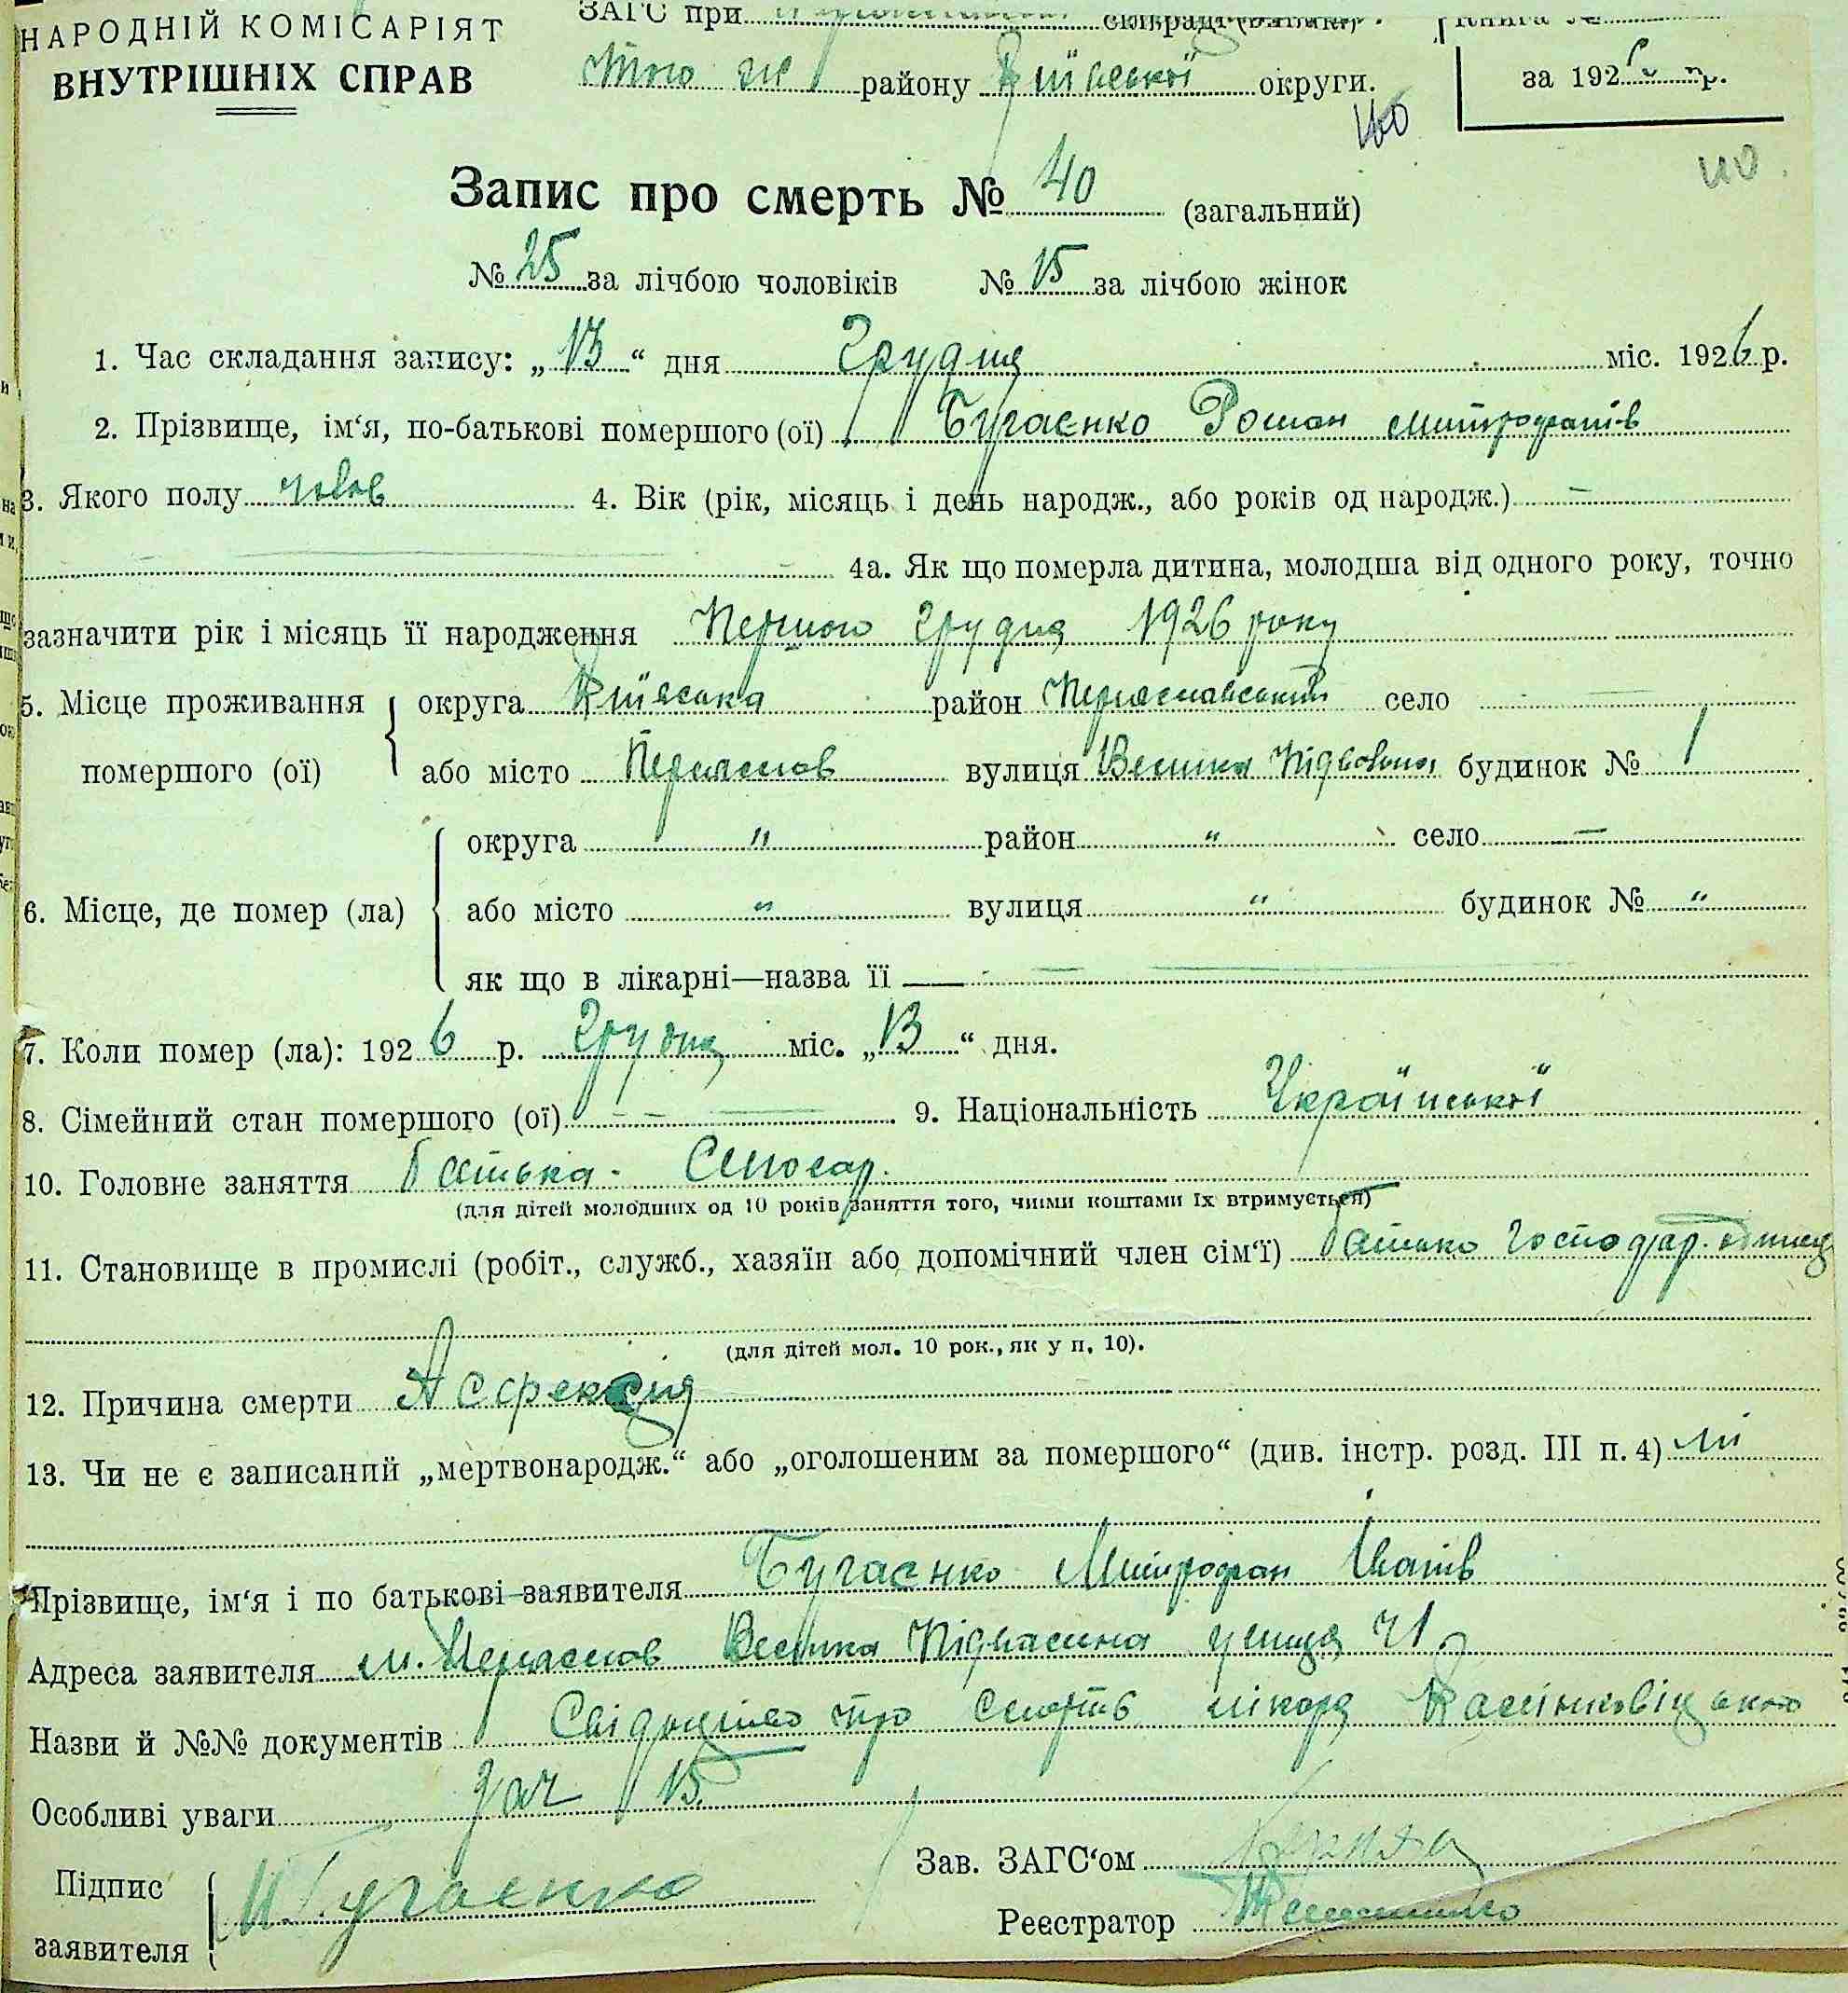 НАРОДНІЙ КОМІСАРІЯТ
ВНУТРІШНІХ СПРАВ
ЗАГС при сільраді (
того ж району Київської округи.
Книга №
за 1926 р.
40
40
Запис про смерть № 40 (загальний)
№ 25 за лічбою чоловіків № 15 за лічбою жінок
1. Час складання запису: „13“ дня Грудня міс. 1926 р.
2. Прізвище, ім‘я, по-батькові помершого (ої) Бугаєнко Роман Митрофанів
3. Якого полу чолов 4. Вік (рік, місяць і день народж., або років од народж.) —
4а. Як що померла дитина, молодша від одного року, точно
зазначити рік і місяць її народження Першого Грудня 1926 року
5. Місце проживання помершого (ої) округа Київська район Переяславський село
або місто Переяслов вулиця Велика Підвальна будинок № 1
6. Місце, де помер (ла) округа " район " село —
або місто " вулиця " будинок № "
як що в лікарні—назва її —
7. Коли помер (ла): 1926 р. Грудня міс. „13“ дня.
8. Сімейний стан помершого (ої) — 9. Національність Української
10. Головне заняття батька - Слюсар.
(для дітей молодших од 10 років заняття того, чиїми коштами їх втримується)
11. Становище в промислі (робіт., служб., хазяїн або допомічний член сім‘ї) батько Господар
(для дітей мол. 10 рок., як у п. 10).
12. Причина смерти Асфексия
13. Чи не є записаний „мертвонародж.“ або „оголошеним за помершого“ (див. інстр. розд. III п. 4) ні
Прізвище, ім‘я і по батькові заявителя Бугаєнко Митрофан Іванів
Адреса заявителя м. Переяслов Велика Підвальна улиця
Назви й №№ документів Свідоцтво про смерть лікаря
Особливі уваги за ч 13.
Підпис заявителя М. Бугаєнко
Зав. ЗАГС‘ом
Реєстратор